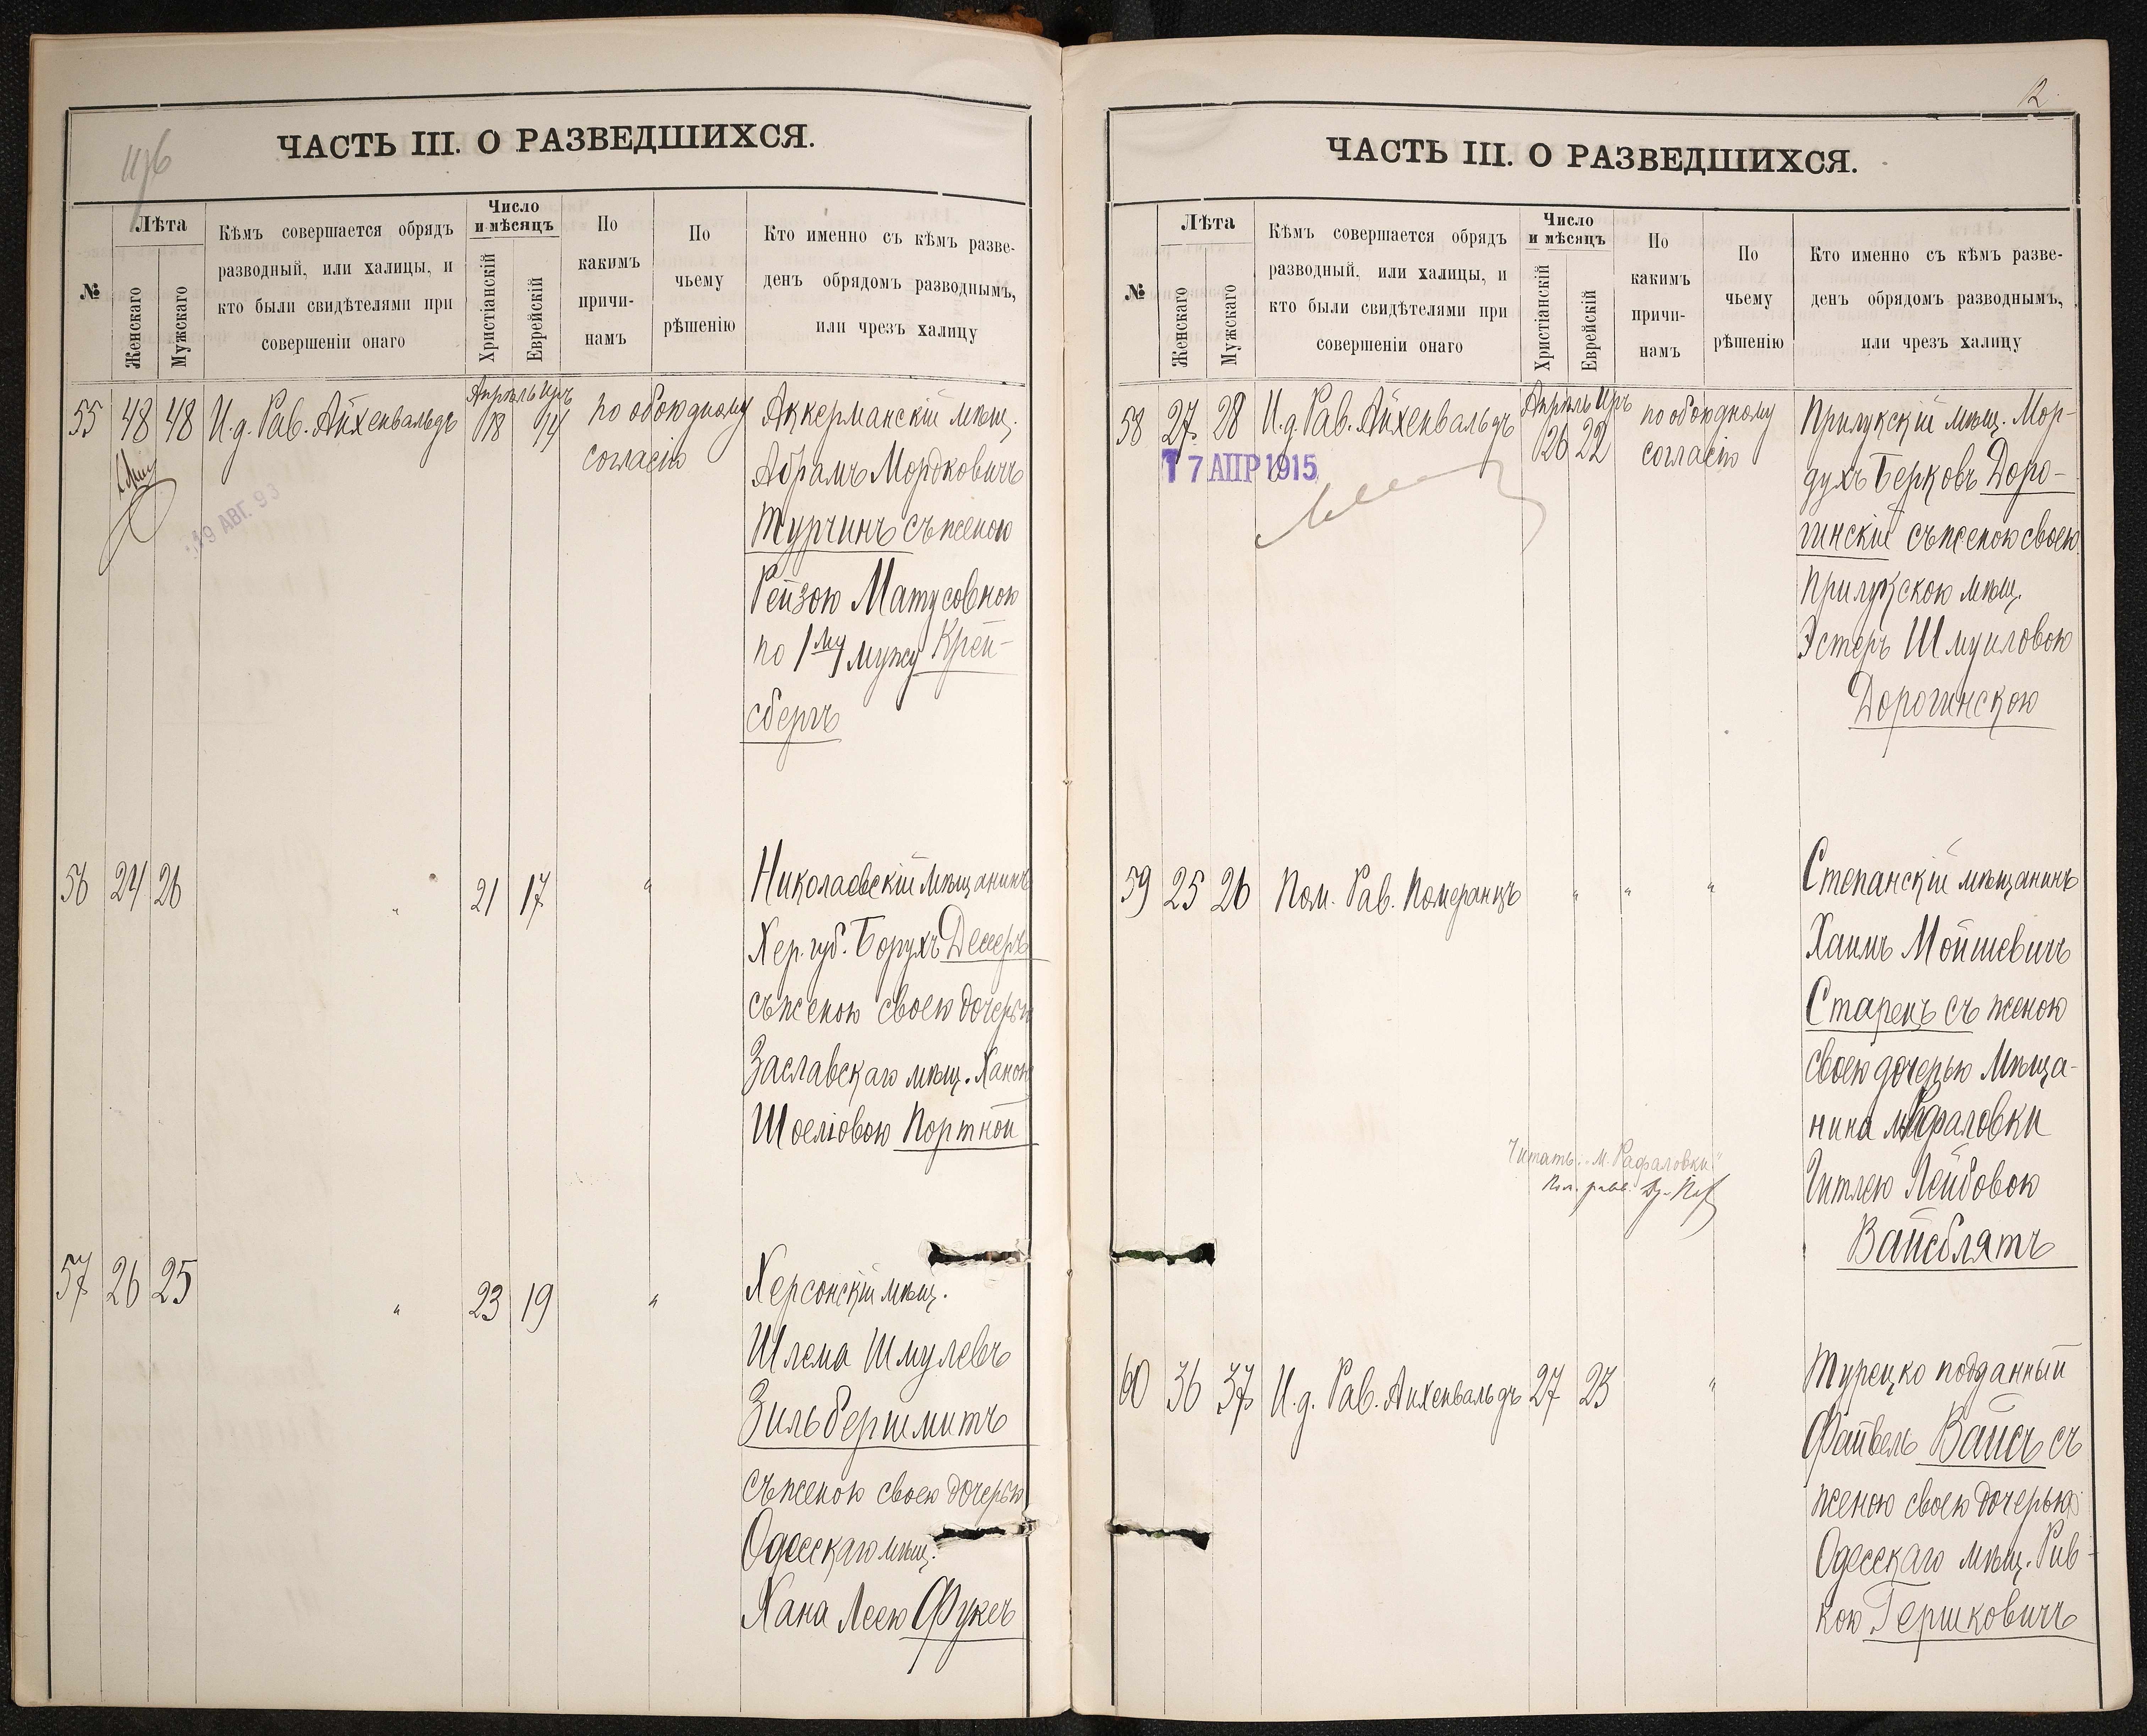 ЧАСТЬ III. О РАЗВЕДШИХСЯ.
№
Лѣта
Женскаго
Мужскаго
Кѣмъ совершается обрядъ
разводный, или халицы, и
кто были свидѣтелями при
совершеніи онаго
Число
и мѣсяцъ
Христіанскій
Еврейскій
По
какимъ
причи-
намъ
По
чьему
рѣшенію
Кто именно съ кѣмъ разве-
денъ обрядомъ разводнымъ,
или чрезъ халицу
55 48 48 И.д. Рав. Айхенвальдъ
Апрѣль Иръ
18 14
по обоюдному
согласію
19 АВГ. 93
Аккерманскій мѣщ.
Абрамъ Мордковичъ
Турчинъ съ женою
Рейзою Матусовною
по 1му мужу Крей-
сбергъ
56 24 26 " 21 17 "
Николаевскій мѣщанинъ
Хер. губ. Борухъ
съ женою своею дочерью
Заславскаго мѣщ. Ханою
Шоеліовою Портной
57 26 25 " 23 19 "
Херсонскій мѣщ.
Шлема Шмулевъ
Зильбершмитъ
съ женою своею дочерью
Одесскаго мѣщ.
Хана Леею Фуксъ
12
ЧАСТЬ III. О РАЗВЕДШИХСЯ.
№
Лѣта
Женскаго
Мужскаго
Кѣмъ совершается обрядъ
разводный, или халицы, и
кто были свидѣтелями при
совершеніи онаго
Число
и мѣсяцъ
Христіанскій
Еврейскій
По
какимъ
причи-
намъ
По
чьему
рѣшенію
Кто именно съ кѣмъ разве-
денъ обрядомъ разводнымъ,
или чрезъ халицу
58 27 28 И.д. Рав. Айхенвальдъ
Апрѣль Иръ
26 22
по обоюдному
согласію
17 АПР 1915
Прилукскій мѣщ. Мор-
духъ Берковъ Доро-
гинскій съ женою своею
Прилукскою мѣщ.
Эстеръ Шмуиловою
Дорогинскою
59 25 26 Пом. Рав. Померанцъ " " "
Степанскій мѣщанинъ
Хаимъ Мойшевичъ
Старецъ съ женою
своею дочерью мѣща-
нина м. Рафаловки
Гитлею Лейбовою
Вайсблятъ
Читать: "М. Рафаловки"
Пом. равв.
60 36 37 И.д. Рав. Айхенвальдъ 27 23 "
Турецко подданный
Файвель Вайсъ съ
женою своею дочерью
Одесскаго мѣщ. Рив-
кою Гершковичъ